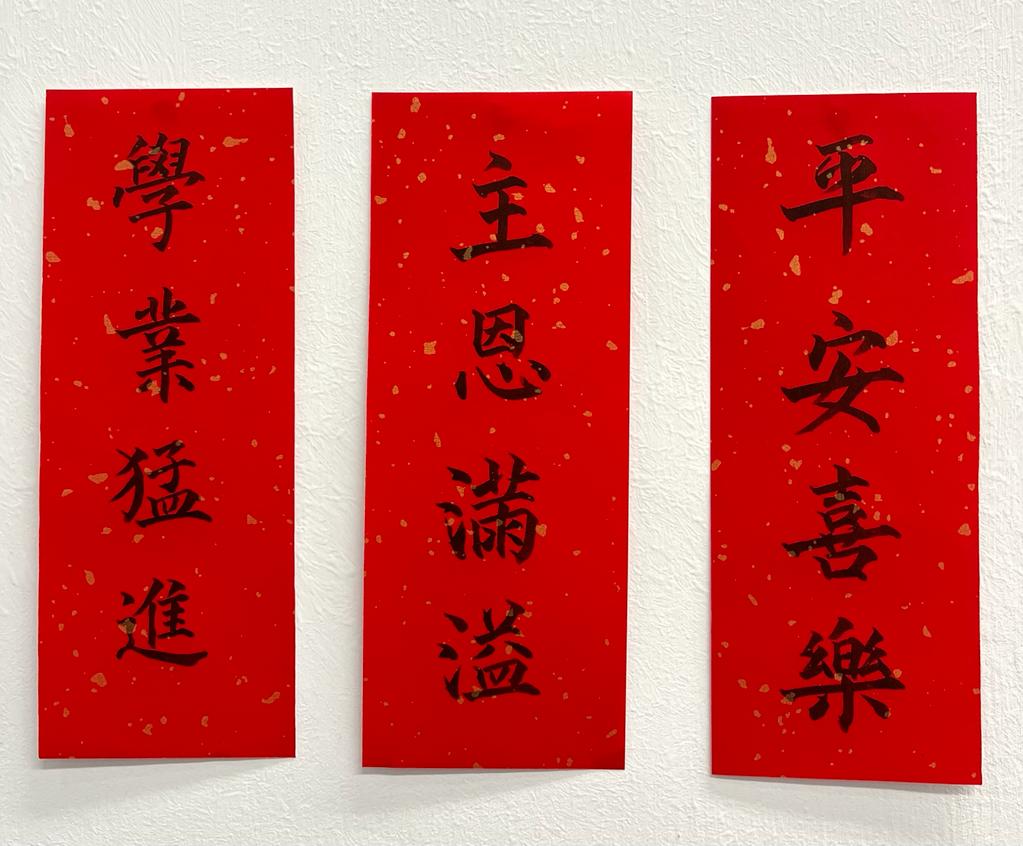 平安喜樂
主恩滿溢
學業猛進